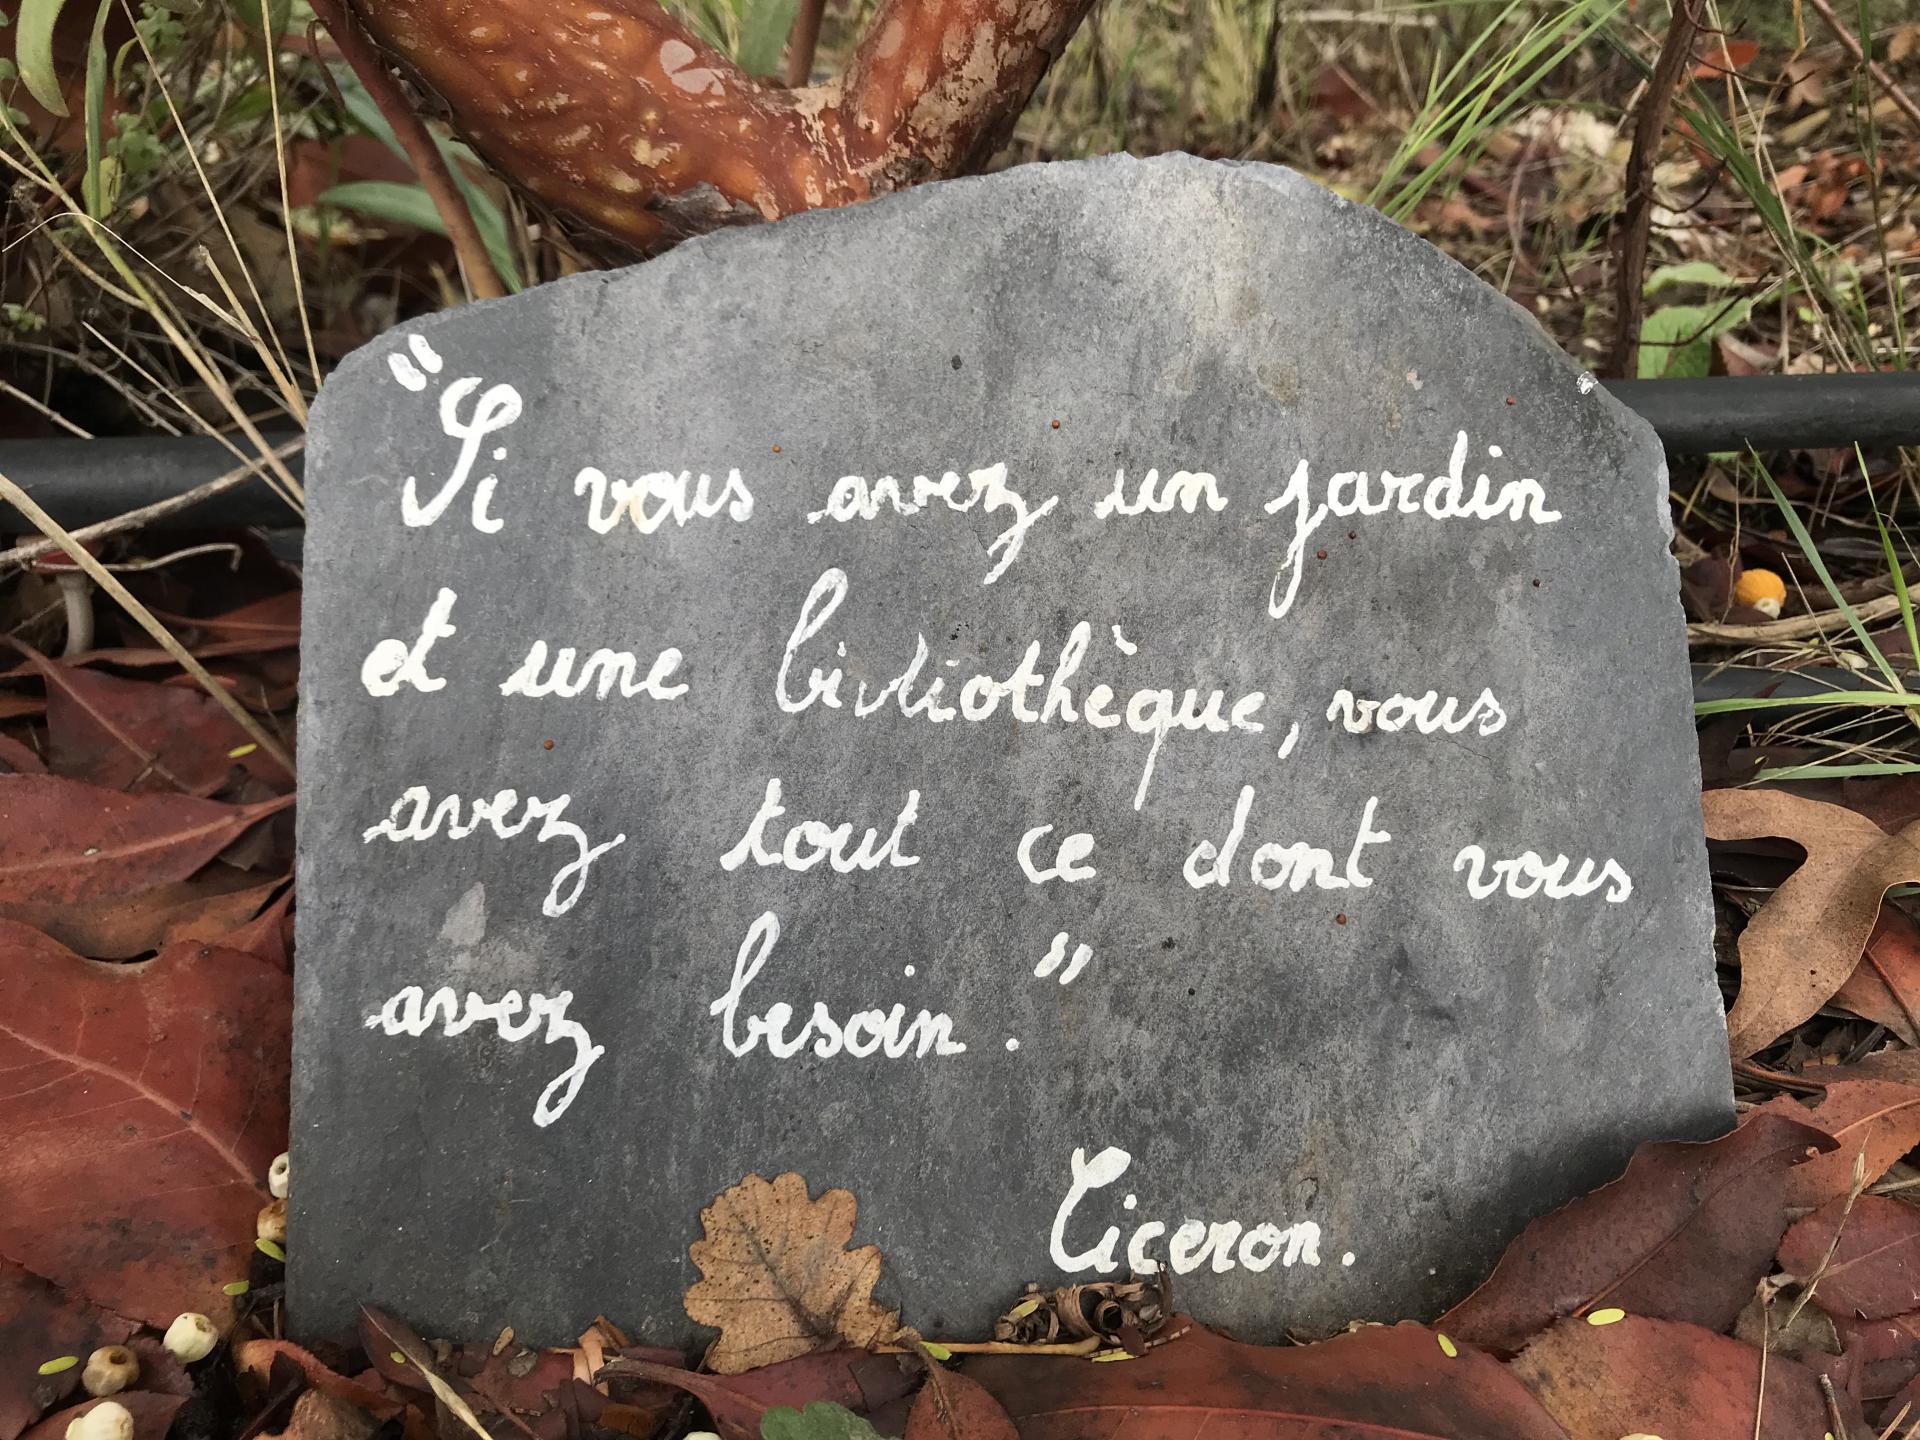 "Si vous avez un jardin
et une bibliothèque, vous
avez tout ce dont vous
avez besoin."
Ciceron.